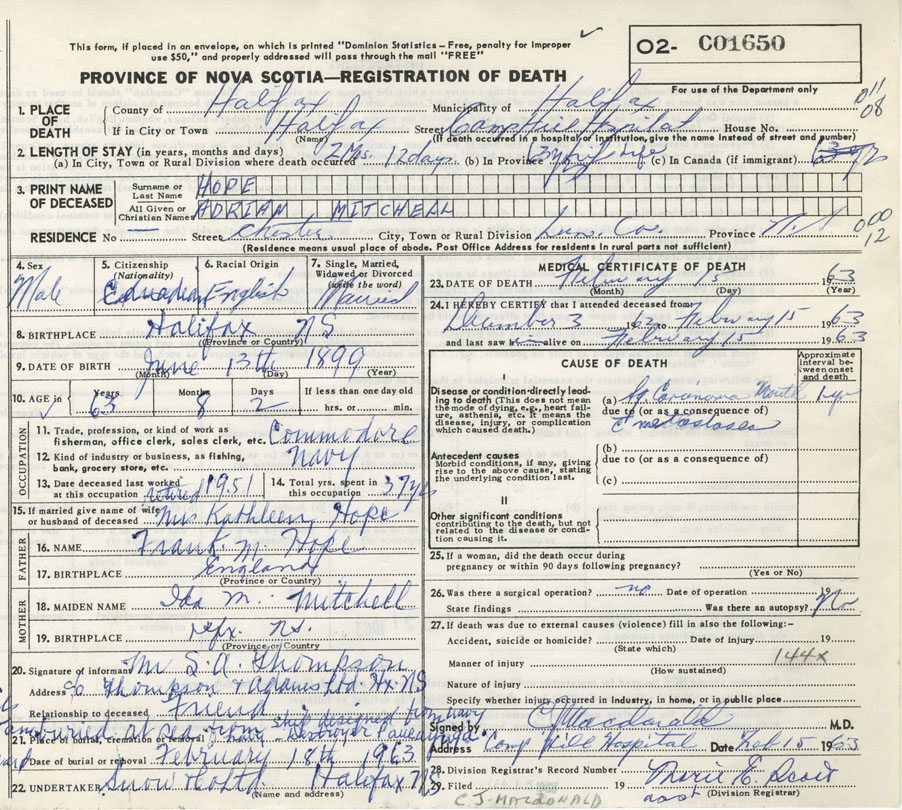 This form, if placed in an envelope, on which is printed "Dominion Statistics – Free, penalty for Improper
use $50," and properly addressed will pass through the mail "FREE"
O2- C01650
For use of the Department only
PROVINCE OF NOVA SCOTIA—REGISTRATION OF DEATH
011
08
1. PLACE OF DEATH County of Halifax Municipality of Halifax
If in City or Town Halifax Street Camp Hill Hospital House No.
(Name) (If death occurred in a hospital or institution, give the name instead of street and number)
2. LENGTH OF STAY (in years, months and days)
(a) In City, Town or Rural Division where death occurred 2 Mos. 12 days. (b) In Province Life (c) In Canada (if immigrant)
3. PRINT NAME OF DECEASED Surname or Last Name HOPE
All Given or Christian Names ADRIAN MITCHEAL
RESIDENCE No — Street Chester City, Town or Rural Division Lun. Co. Province N.S
(Residence means usual place of abode. Post Office Address for residents in rural parts not sufficient)
000
12
4. Sex Male
5. Citizenship (Nationality) Canadian
6. Racial Origin English
7. Single, Married, Widowed or Divorced (write the word) Married
8. BIRTHPLACE Halifax NS
(Province or Country)
9. DATE OF BIRTH June 13th 1899
(Month) (Day) (Year)
10. AGE in Years 63 Months 8 Days 2 If less than one day old hrs. or min.
OCCUPATION
11. Trade, profession, or kind of work as fisherman, office clerk, sales clerk, etc. Commodore
12. Kind of industry or business, as fishing, bank, grocery store, etc. Navy
13. Date deceased last worked at this occupation retired 1951 14. Total yrs. spent in this occupation 37 yrs
15. If married give name of wife or husband of deceased Mrs Kathleen Hope
FATHER
16. NAME Frank M. Hope
17. BIRTHPLACE England
(Province or Country)
MOTHER
18. MAIDEN NAME Ida M. Mitchell
19. BIRTHPLACE Hfx. NS.
(Province or Country)
20. Signature of informant Mr S. A. Thompson
Address c/o Thompson & Adams Ltd. Hx. NS
Relationship to deceased Friend
buried at sea from ship designed from navy
21. Place of burial, cremation or removal Destroyer
Date of burial or removal February 18th 1963
22. UNDERTAKER Snow Halifax NS
(Name and address)
MEDICAL CERTIFICATE OF DEATH
23. DATE OF DEATH February 15 1963
(Month) (Day) (Year)
24. I HEREBY CERTIFY that I attended deceased from
December 3 1962 to February 15 1963
and last saw him alive on February 15 1963
CAUSE OF DEATH
Approximate interval between onset and death
I
Disease or condition directly leading to death (This does not mean the mode of dying, e.g., heart failure, asthenia, etc. It means the disease, injury, or complication which caused death.)
(a) Carcinoma Mouth 1 yr
due to (or as a consequence of)
c metastases
Antecedent causes
Morbid conditions, if any, giving rise to the above cause, stating the underlying condition last.
(b)
due to (or as a consequence of)
(c)
II
Other significant conditions contributing to the death, but not related to the disease or condition causing it.
25. If a woman, did the death occur during pregnancy or within 90 days following pregnancy?
(Yes or No)
26. Was there a surgical operation? no Date of operation 19
State findings Was there an autopsy? No
27. If death was due to external causes (violence) fill in also the following:–
Accident, suicide or homicide? Date of injury 19
(State which)
144x
Manner of injury
(How sustained)
Nature of injury
Specify whether injury occurred in Industry, in home, or in public place
Signed by C J Macdonald M.D.
Address Camp Hill Hospital Date Feb 15 1963
28. Division Registrar's Record Number
29. Filed 19 Marie E. Scott
asst (Division Registrar)
C J- MACDONALD